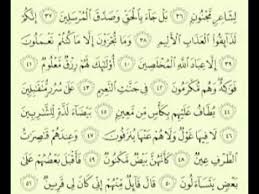 لِشَاعِرٍ مَّجْنُونٍ ٣٦ بَلْ جَآءَ بِٱلْحَقِّ وَصَدَّقَ ٱلْمُرْسَلِينَ ٣٧ إِنَّكُمْ
لَذَآئِقُوا۟ ٱلْعَذَابِ ٱلْأَلِيمِ ٣٨ وَمَا تُجْزَوْنَ إِلَّا مَا كُنتُمْ تَعْمَلُونَ
٣٩ إِلَّا عِبَادَ ٱللَّهِ ٱلْمُخْلَصِينَ ٤٠ أُو۟لَٰٓئِكَ لَهُمْ رِزْقٌ مَّعْلُومٌ ٤١
فَوَٰكِهُ وَهُم مُّكْرَمُونَ ٤٢ فِى جَنَّٰتِ ٱلنَّعِيمِ ٤٣ عَلَىٰ سُرُرٍ مُّتَقَٰبِلِينَ
٤٤ يُطَافُ عَلَيْهِم بِكَأْسٍ مِّن مَّعِينٍ ٤٥ بَيْضَآءَ لَذَّةٍ لِّلشَّٰرِبِينَ
٤٦ لَا فِيهَا غَوْلٌ وَلَا هُمْ عَنْهَا يُنزَفُونَ ٤٧ وَعِندَهُمْ قَٰصِرَٰتُ
ٱلطَّرْفِ عِينٌ ٤٨ كَأَنَّهُنَّ بَيْضٌ مَّكْنُونٌ ٤٩ فَأَقْبَلَ بَعْضُهُمْ عَلَىٰ
بَعْضٍ يَتَسَآءَلُونَ ٥٠ قَالَ قَآئِلٌ مِّنْهُمْ إِنِّى كَانَ لِى قَرِينٌ ٥١